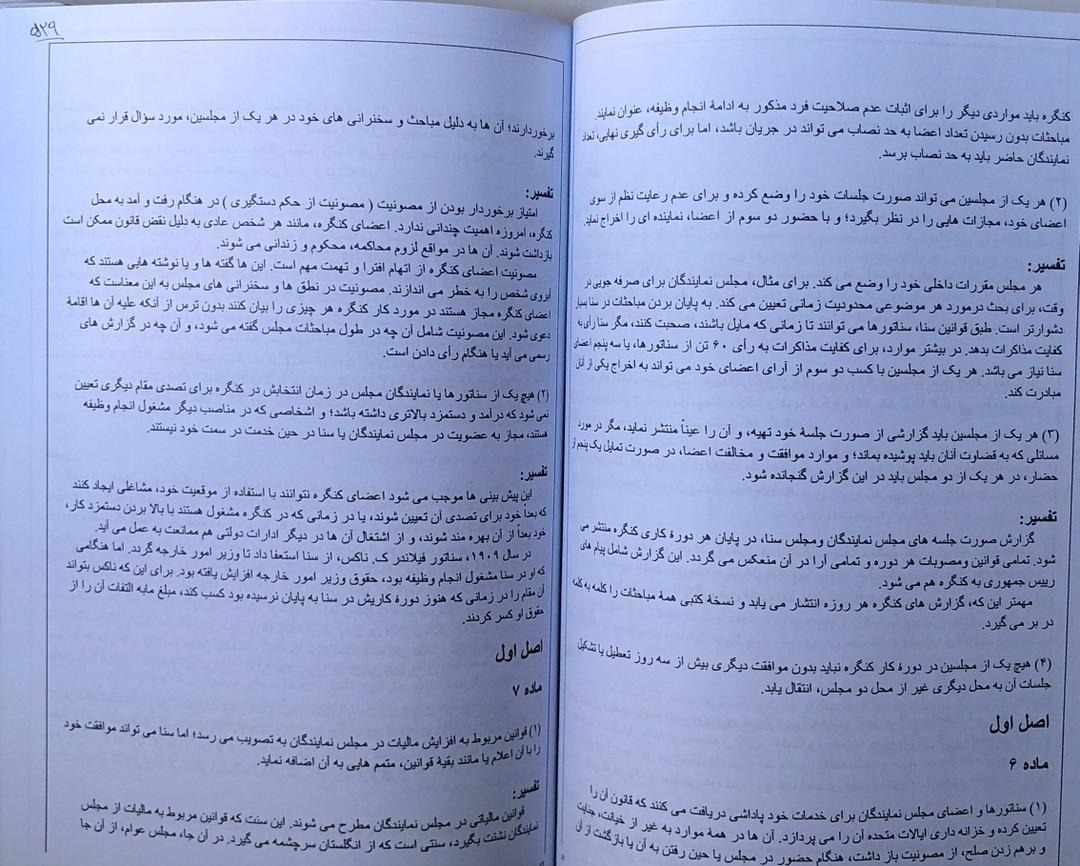 کنگره باید مواردی دیگر را برای اثبات عدم صلاحیت فرد مذکور به ادامۀ انجام وظیفه، عنوان نمایند.
مباحثات بدون رسیدن تعداد اعضا به حد نصاب می تواند در جریان باشد، اما برای رأی گیری نهایی، تعداد
نمایندگان حاضر باید به حد نصاب برسد.
(۲) هر یک از مجلسین می تواند صورت جلسات خود را وضع کرده و برای عدم رعایت نظم از سوی
اعضای خود، مجازات هایی را در نظر بگیرد؛ و با حضور دو سوم از اعضا، نماینده ای را اخراج نماید.
تفسیر:
هر مجلس مقررات داخلی خود را وضع می کند. برای مثال، مجلس نمایندگان برای صرفه جویی در
وقت، برای بحث درمورد هر موضوعی محدودیت زمانی تعیین می کند. به پایان بردن مباحثات در سنا بسیار
دشوارتر است. طبق قوانین سنا، سناتورها می توانند تا زمانی که مایل باشند، صحبت کنند، مگر سنا رأی به
کفایت مذاکرات بدهد. در بیشتر موارد، برای کفایت مذاکرات به رأی ۶۰ تن از سناتورها، یا سه پنجم اعضای
سنا نیاز می باشد. هر یک از مجلسین با کسب دو سوم از آرای اعضای خود می تواند به اخراج یکی از آنان
مبادرت کند.
(۳) هر یک از مجلسین باید گزارشی از صورت جلسۀ خود تهیه، و آن را عیناً منتشر نماید، مگر در مورد
مسائلی که به قضاوت آنان باید پوشیده بماند؛ و موارد موافقت و مخالفت اعضا، در صورت تمایل یک پنجم از
حضار، در هر یک از دو مجلس باید در این گزارش گنجانده شود.
تفسیر:
گزارش صورت جلسه های مجلس نمایندگان ومجلس سنا، در پایان هر دورۀ کاری کنگره منتشر می
شود. تمامی قوانین ومصوبات هر دوره و تمامی آرا در آن منعکس می گردد. این گزارش شامل پیام های
رییس جمهوری به کنگره هم می شود.
مهمتر این که، گزارش های کنگره هر روزه انتشار می یابد و نسخۀ کتبی همۀ مباحثات را کلمه به کلمه
در بر می گیرد.
(۴) هیچ یک از مجلسین در دورۀ کار کنگره نباید بدون موافقت دیگری بیش از سه روز تعطیل یا تشکیل
جلسات آن به محل دیگری غیر از محل دو مجلس، انتقال یابد.
اصل اول
ماده ۶
(۱) سناتورها و اعضای مجلس نمایندگان برای خدمات خود پاداشی دریافت می کنند که قانون آن را
تعیین کرده و خزانه داری ایالات متحده آن را می پردازد. آن ها در همۀ موارد به غیر از خیانت، جنایت
و برهم زدن صلح، از مصونیت باز داشت، هنگام حضور در مجلس یا حین رفتن به آن یا بازگشت از آن
۵۲۹
برخوردارند؛ آن ها به دلیل مباحث و سخنرانی های خود در هر یک از مجلسین، مورد سؤال قرار نمی
گیرند.
تفسیر:
امتیاز برخوردار بودن از مصونیت ( مصونیت از حکم دستگیری ) در هنگام رفت و آمد به محل
کنگره، امروزه اهمیت چندانی ندارد. اعضای کنگره، مانند هر شخص عادی به دلیل نقض قانون ممکن است
بازداشت شوند. آن ها در مواقع لزوم محاکمه، محکوم و زندانی می شوند.
مصونیت اعضای کنگره از اتهام افترا و تهمت مهم است. این ها گفته ها و یا نوشته هایی هستند که
آبروی شخص را به خطر می اندازند. مصونیت در نطق ها و سخنرانی های مجلس به این معناست که
اعضای کنگره مجاز هستند در مورد کار کنگره هر چیزی را بیان کنند بدون ترس از آنکه علیه آن ها اقامۀ
دعوی شود. این مصونیت شامل آن چه در طول مباحثات مجلس گفته می شود، و آن چه در گزارش های
رسمی می آید یا هنگام رأی دادن است.
(۲) هیچ یک از سناتورها یا نمایندگان مجلس در زمان انتخابش در کنگره برای تصدی مقام دیگری تعیین
نمی شود که درآمد و دستمزد بالاتری داشته باشد؛ و اشخاصی که در مناصب دیگر مشغول انجام وظیفه
هستند، مجاز به عضویت در مجلس نمایندگان یا سنا در حین خدمت در سمت خود نیستند.
تفسیر:
این پیش بینی ها موجب می شود اعضای کنگره نتوانند با استفاده از موقعیت خود، مشاغلی ایجاد کنند
که بعداً خود برای تصدی آن تعیین شوند، یا در زمانی که در کنگره مشغول هستند با بالا بردن دستمزد کار،
خود بعداً از آن بهره مند شوند، و از اشتغال آن ها در دیگر ادارات دولتی هم ممانعت به عمل می آید.
در سال ۱۹۰۹، سناتور فیلاندر ک. ناکس، از سنا استعفا داد تا وزیر امور خارجه گردد. اما هنگامی
که او در سنا مشغول انجام وظیفه بود، حقوق وزیر امور خارجه افزایش یافته بود. برای این که ناکس بتواند
آن مقام را در زمانی که هنوز دورۀ کاریش در سنا به پایان نرسیده بود کسب کند، مبلغ مابه التفات آن را از
حقوق او کسر کردند.
اصل اول
ماده ۷
(۱) قوانین مربوط به افزایش مالیات در مجلس نمایندگان به تصویب می رسد؛ اما سنا می تواند موافقت خود
را با آن اعلام یا مانند بقیۀ قوانین، متمم هایی به آن اضافه نماید.
تفسیر:
قوانین مالیاتی در مجلس نمایندگان مطرح می شوند. این سنت که قوانین مربوط به مالیات از مجلس
نمایندگان نشئت بگیرد، سنتی است که از انگلستان سرچشمه می گیرد. در آن جا، مجلس عوام، از آن جا